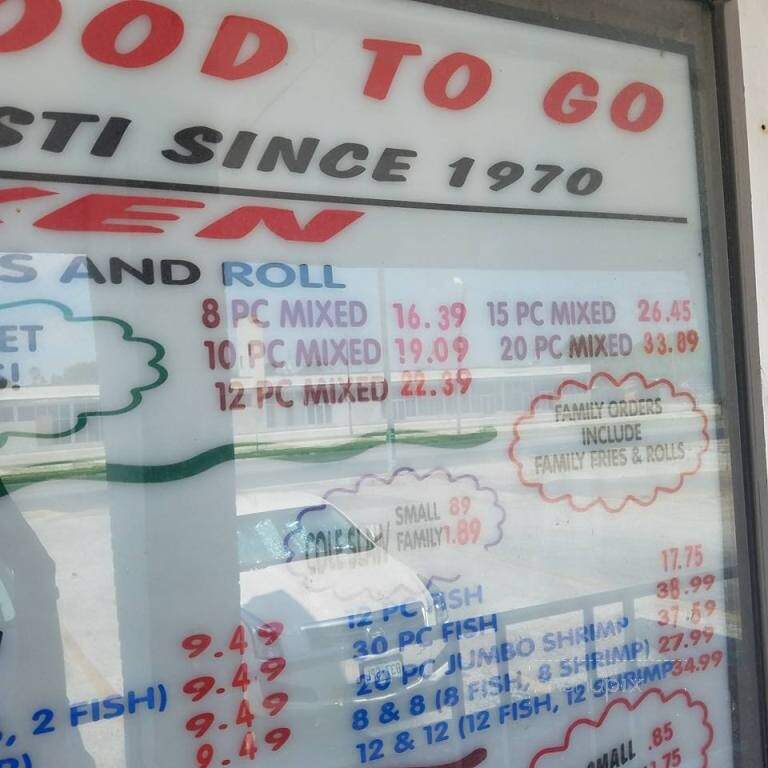 OOD TO GO
STI SINCE 1970
KEN
S AND ROLL
8 PC MIXED 16.39 15 PC MIXED 26.45
10 PC MIXED 19.09 20 PC MIXED 33.89
12 PC MIXED 22.39
ET
S!
FAMILY ORDERS
INCLUDE
FAMILY FRIES & ROLLS
COLE SLAW/ SMALL 89
FAMILY 1.89
12 PC FISH 17.75
30 PC FISH 38.99
9.49 20 PC JUMBO SHRIMP 37.69
9.49 8 & 8 (8 FISH, 8 SHRIMP) 27.99
, 2 FISH) 9.49 12 & 12 (12 FISH, 12 SHRIMP 34.99
9.49
SMALL .85
1.75